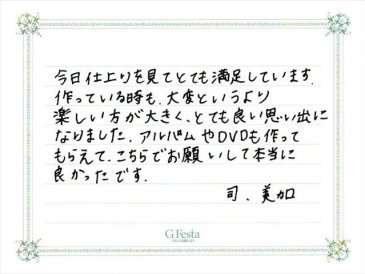 今日仕上りを見てとても満足しています.
作っている時も、大変というより
楽しい方が大きく、とても良い思い出に
なりました. アルバムやDVDも作って
もらえて、こちらでお願いして本当に
良かったです.
司、美加
G.Festa